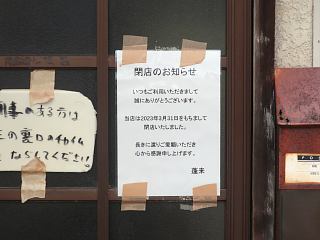 閉店のお知らせ
いつもご利用いただきまして
誠にありがとうございます。
当店は2023年3月31日をもちまして
閉店いたしました。
長きに渡りご愛顧いただき
心から感謝申し上げます。
蓬来
ある方は
の裏口の
ならしてください。
POS